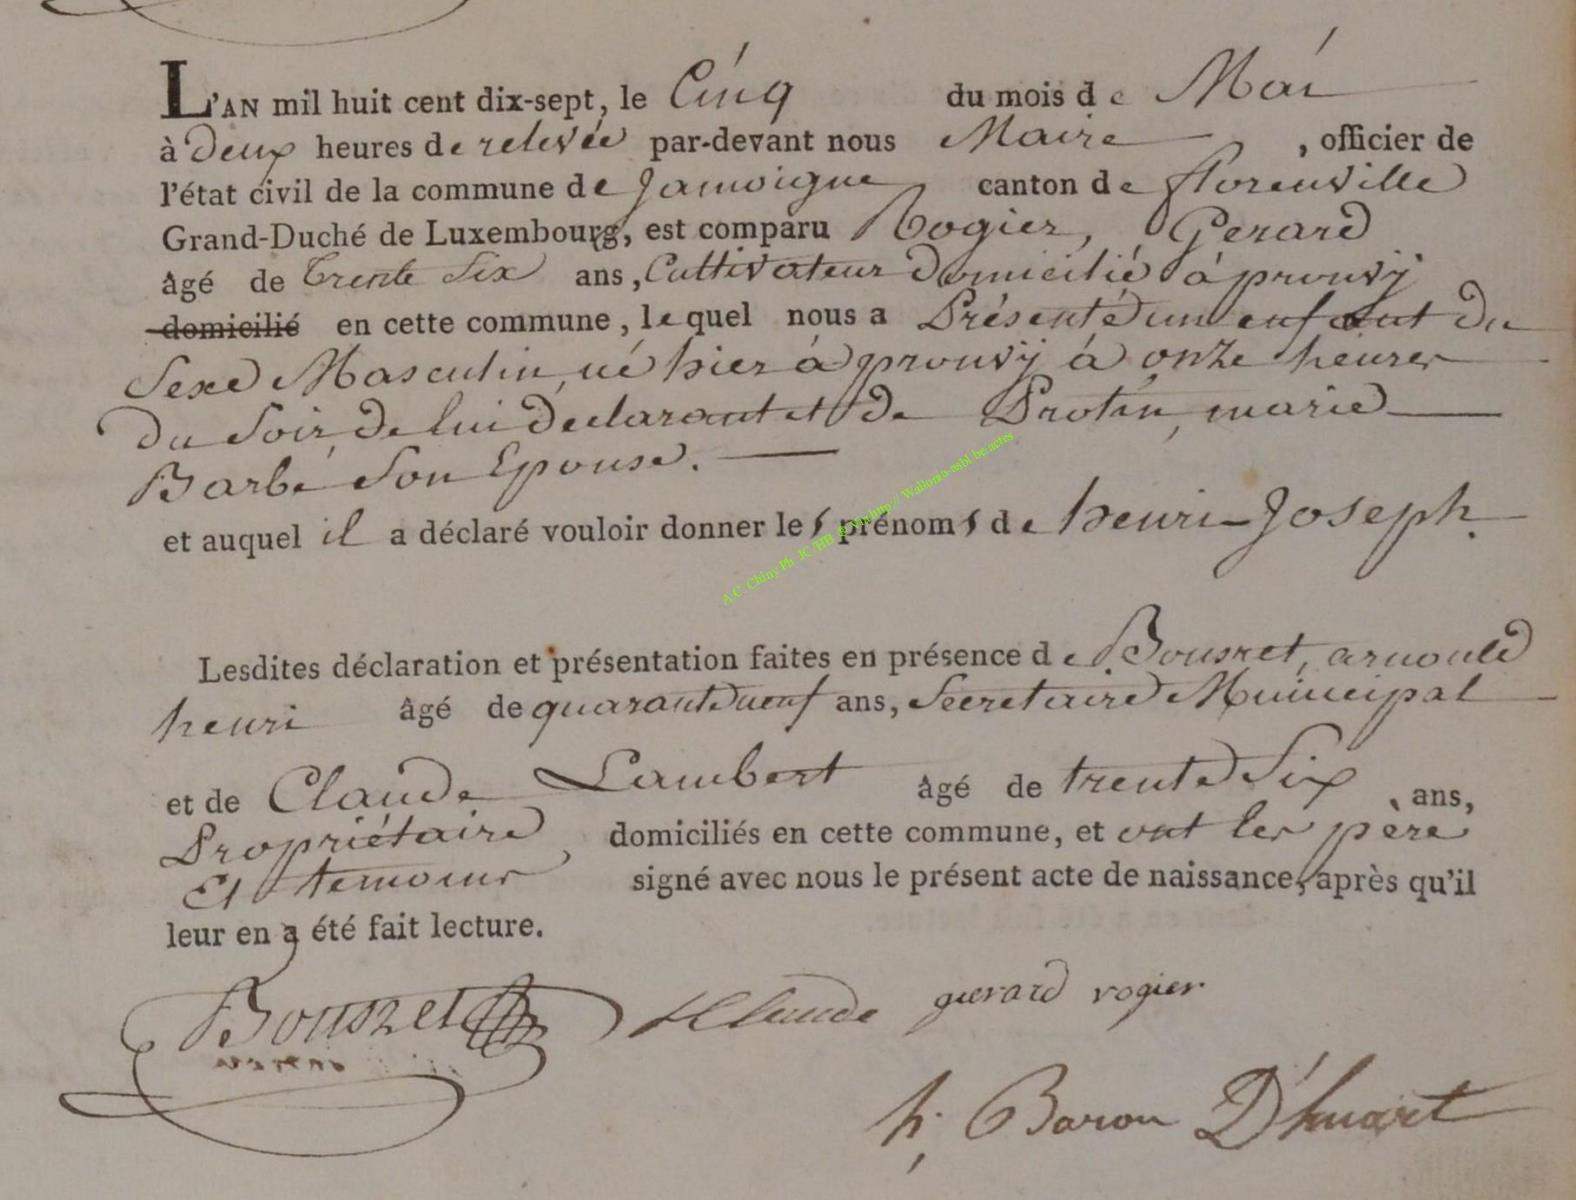 L'AN mil huit cent dix-sept, le Cinq du mois de Mai
à deux heures de relevée par-devant nous Maire, officier de
l'état civil de la commune de Jamoigne canton de florenville
Grand-Duché de Luxembourg, est comparu Rogier, Gerard
âgé de trente Six ans, Cultivateur domicilié à prouvÿ
domicilié en cette commune, lequel nous a Présenté un enfant du
Sexe Masculin, né hier à prouvÿ à onze heures
du Soir, de lui declarant et de Protin, marie
Barbe Son Epouse.
et auquel il a déclaré vouloir donner les prénoms de henri-Joseph.
Lesdites déclaration et présentation faites en présence de Bousret, arnould
henri âgé de quarante neuf ans, Secretaire Municipal
et de Claude Lambert âgé de trente Six ans,
Propriétaire, domiciliés en cette commune, et ont les père
Et temoins signé avec nous le présent acte de naissance, après qu'il
leur en a été fait lecture.
Bousret Claude gerard rogier
h. Baron D'huart